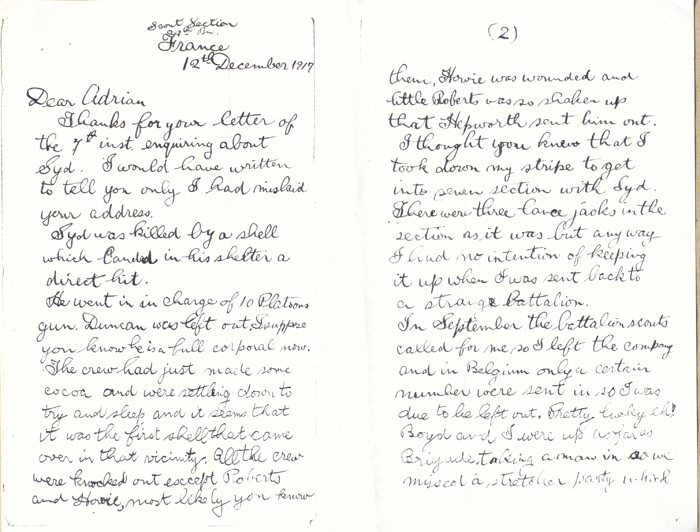 Scout Section
Bn.
France
12th December 1917
Dear Adrian
Thanks for your letter of
the 7th inst. enquiring about
Syd. I would have written
to tell you only I had mislaid
your address.
Syd was killed by a shell
which landed in his shelter a
direct hit.
He went in in charge of 10 Platoons
gun. Duncan was left out, I suppose
you know he is a full corporal now.
The crew had just made some
cocoa and were settling down to
try and sleep and it seems that
it was the first shell that came
over in that vicinity. All the crew
were knocked out except Roberts
and Howie, most likely you know
(2)
them, Howie was wounded and
little Roberts was so shaken up
that Hepworth sent him out.
I thought you knew that I
took down my stripe to get
into seven section with Syd.
There were three lance jacks in the
section as it was but anyway
I had no intention of keeping
it up when I was sent back to
a strange battalion.
In September the battalion scouts
called for me so I left the company
and in Belgium only a certain
number were sent in so I was
due to be left out. Pretty lucky eh!
Boyd and I were up as far as
Brigade, taking a man in so we
missed a stretcher party which